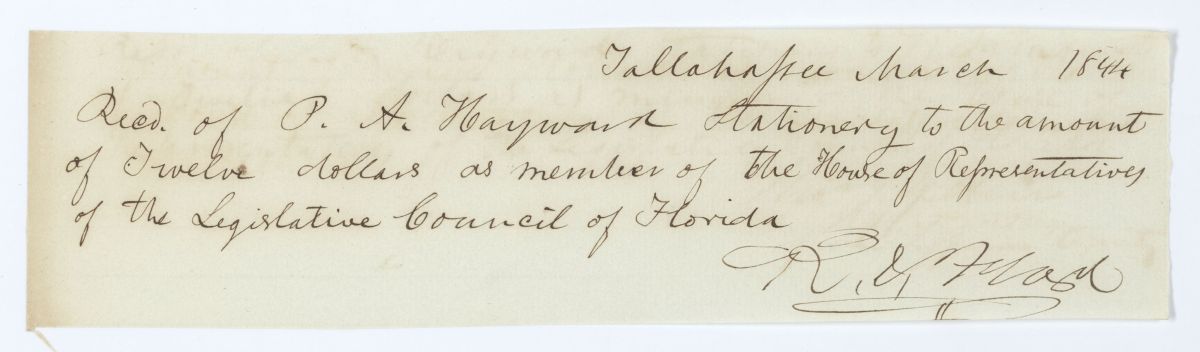 Tallahassee March 1844
Recd. of P. A. Hayward Stationery to the amount
of Twelve dollars as member of the House of Representatives
of the Legislative Council of Florida
R.